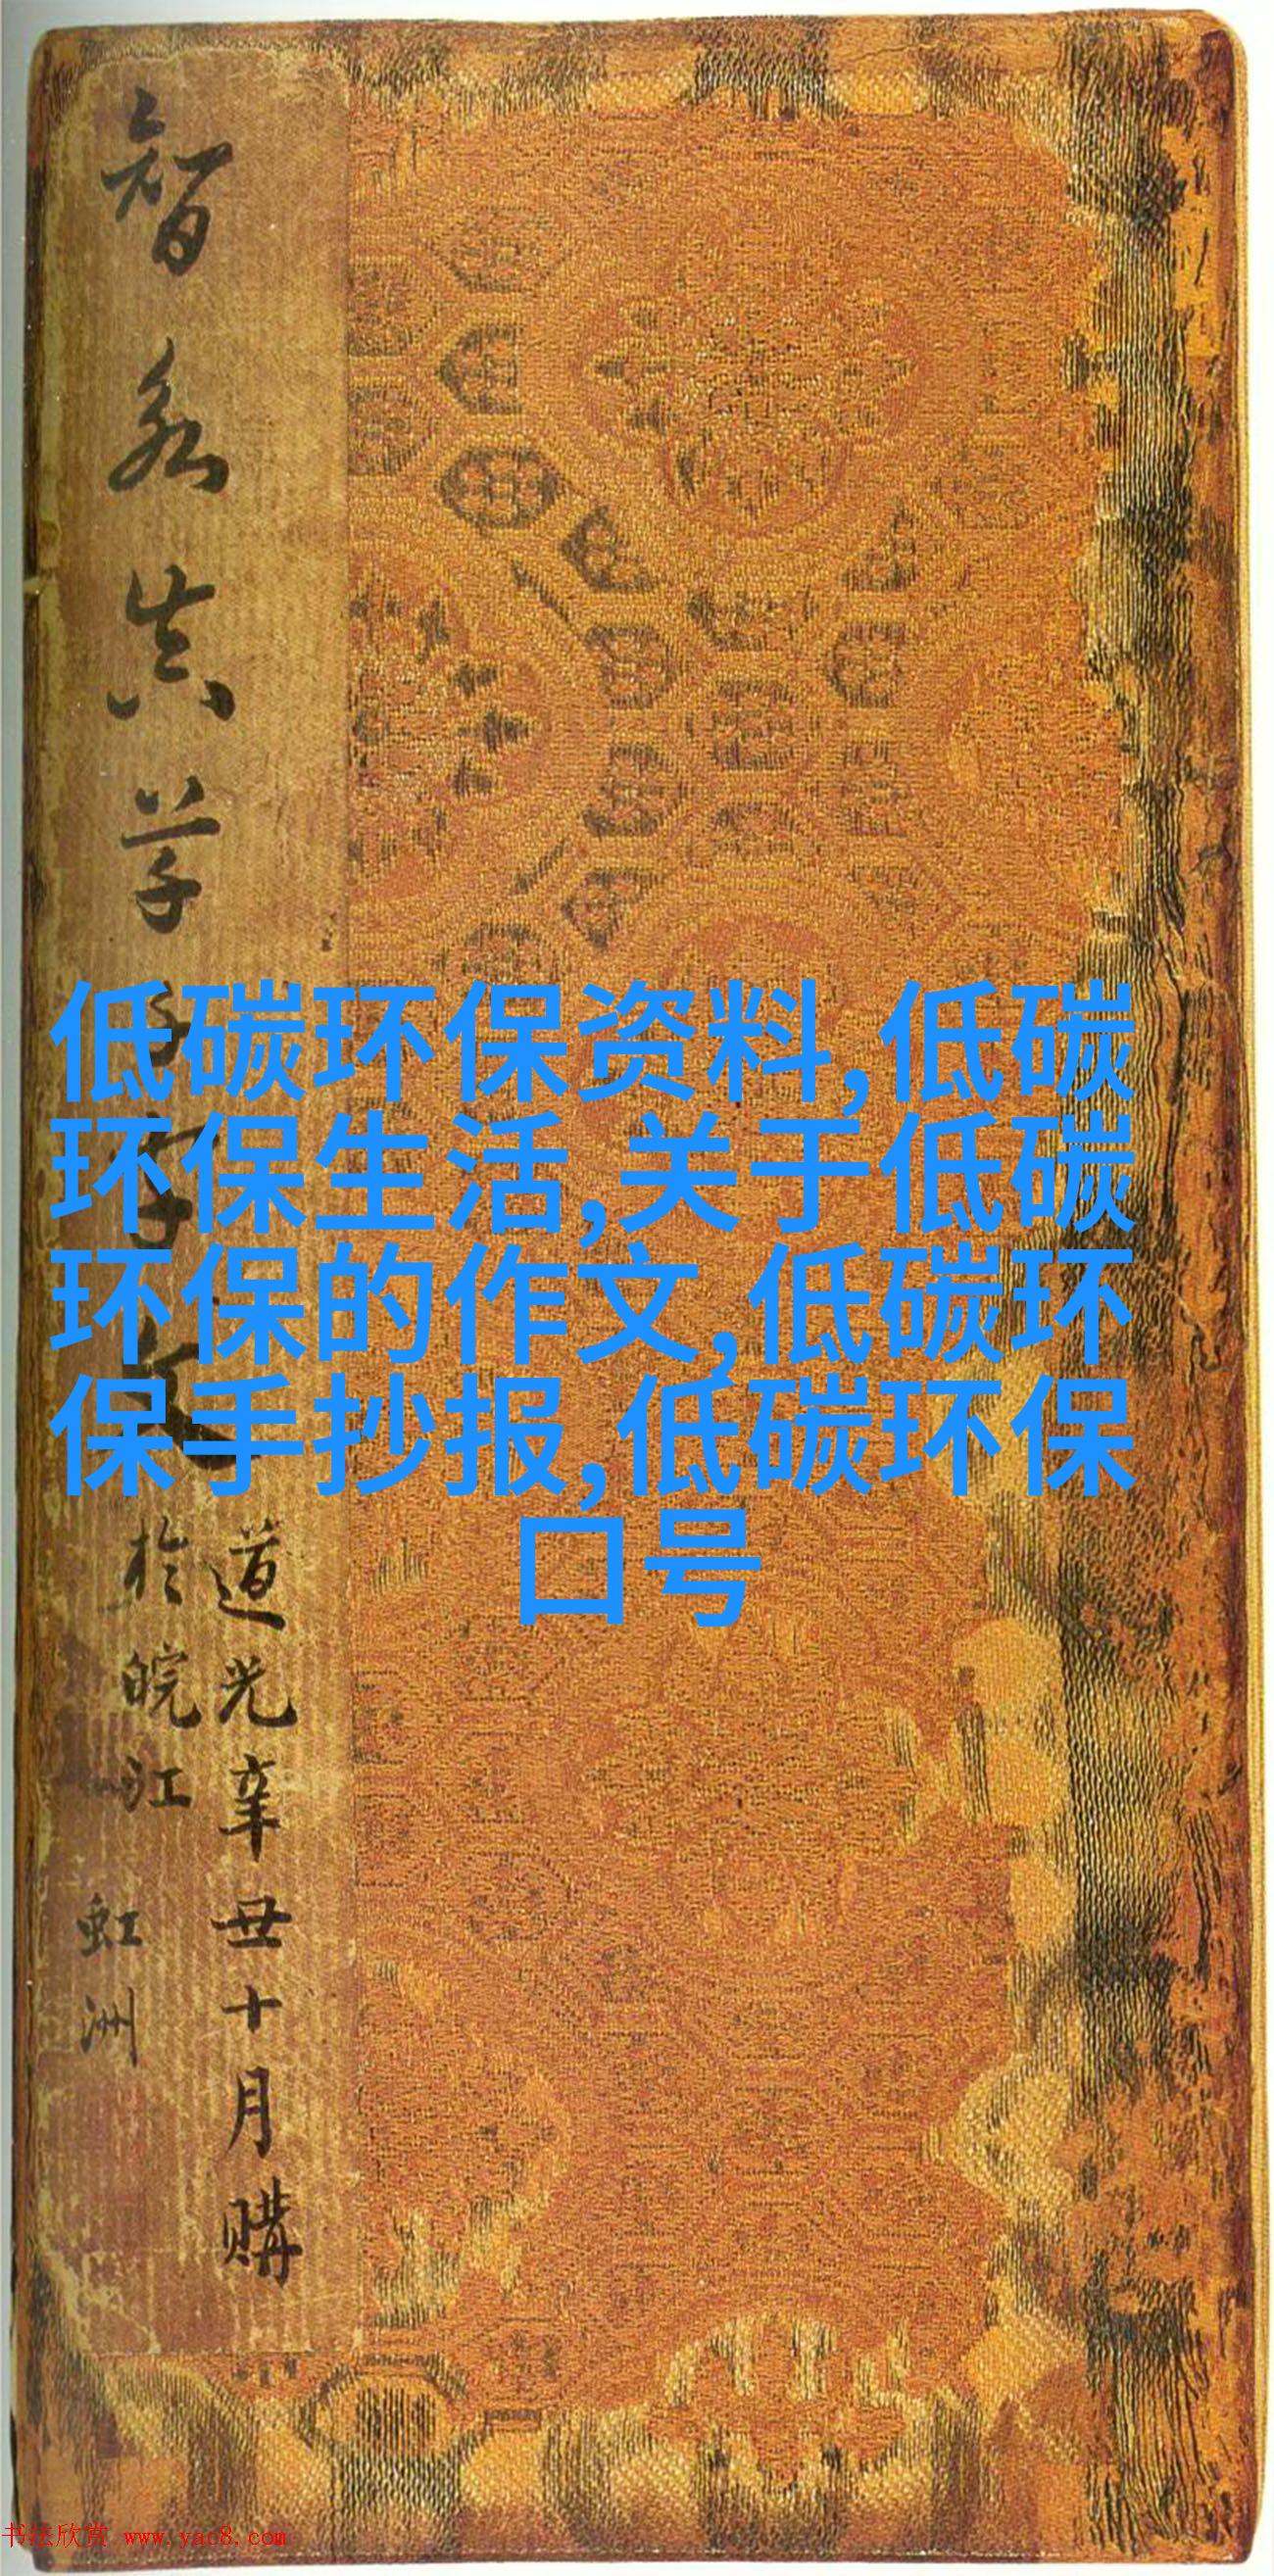 智永真草
道光辛丑十月購
於皖江
虹洲
低碳环保资料,低碳
环保生活,关于低碳
环保的作文,低碳环
保手抄报,低碳环保
口号
书法欣赏 www.yac8.com